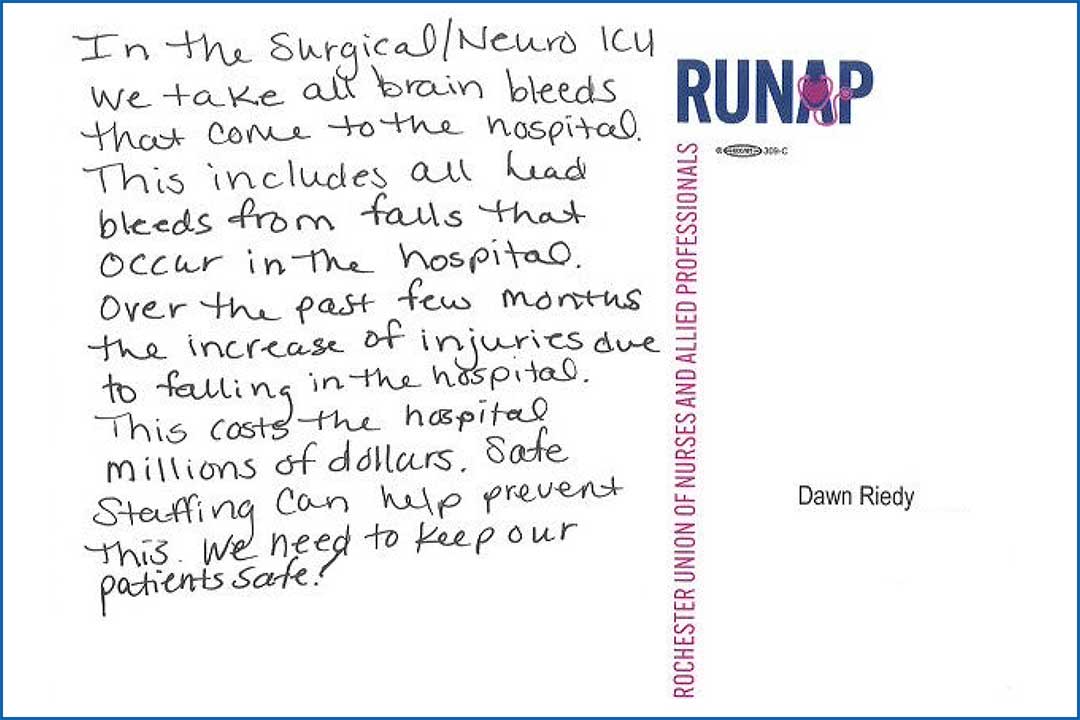 In the Surgical/Neuro ICU
we take all brain bleeds
that come to the hospital.
This includes all head
bleeds from falls that
occur in the hospital.
Over the past few months
the increase of injuries due
to falling in the hospital.
This costs the hospital
millions of dollars. Safe
Staffing can help prevent
this. We need to keep our
patients safe!
RUNAP
309-C
ROCHESTER UNION OF NURSES AND ALLIED PROFESSIONALS
Dawn Riedy